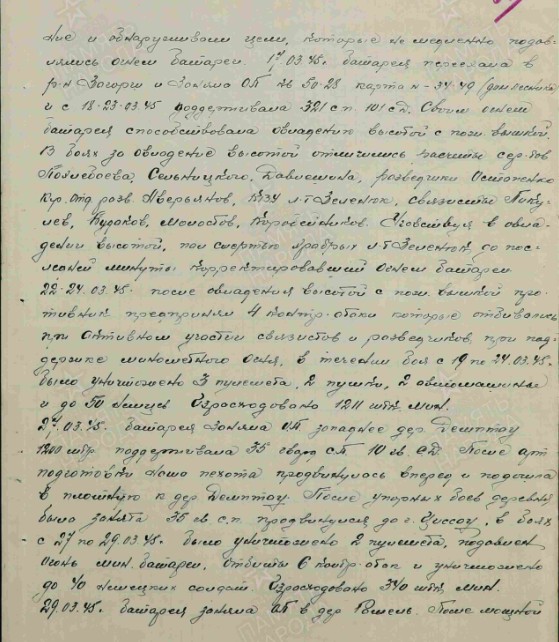 ние и обнаруживали цели, которые немедленно подав-
лялись огнем батареи. 03.45г. батарея переехала в
р-н Загорш и заняла ОП кв 50-28 карта м-34-49 (дом лесника)
и с 18-23.03.45 поддерживала 321 с.п. 101 с.д. Своим огнем
батарея способствовала овладению высотой с пож. вышкой.
В боях за овладение высотой отличились расчеты сер-тов
Сельницкого, разведчики Остапенко
Ком. отд. разв. Аверьянов, л-т Зеленюк, связисты
лев, Кулаков, Коробейников. Участвуя в овла-
дении высотой, пал смертью храбрых л-т Зеленюк до пос-
ледней минуты корректировавший огнем батареи
22-24.03.45г. после овладения высотой с пож. вышкой про-
тивник предпринял 4 контр-атаки которые отбивались
при активном участии связистов и разведчиков, при под-
держке минометного огня, в течении боя с 19 по 24.03.45г.
было уничтожено 3 пулемета, 2 пушки, 2 автомашины
и до 50 немцев Израсходовано 1211 штк. мин.
03.45г. батарея заняла ОП западнее дер Демптау
1200 мтр. поддерживала 35 гвард с.п. 10 гв. с.д. После арт
подготовки наша пехота продвинулась вперед и подошла
в плотную к дер Демптау. После упорных боев деревня
была занята 35 гв. с.п. продвинулся до г. Циссау, в боях
с 27 по 29.03.45г. было уничтожено 2 пулемета, подавлен
огонь мин. батареи, отбиты 6 контр.атак и уничтожено
до 40 немецких солдат. Израсходовано 340 штк. мин.
29.03.45г. батарея заняла ОП в дер После мощной